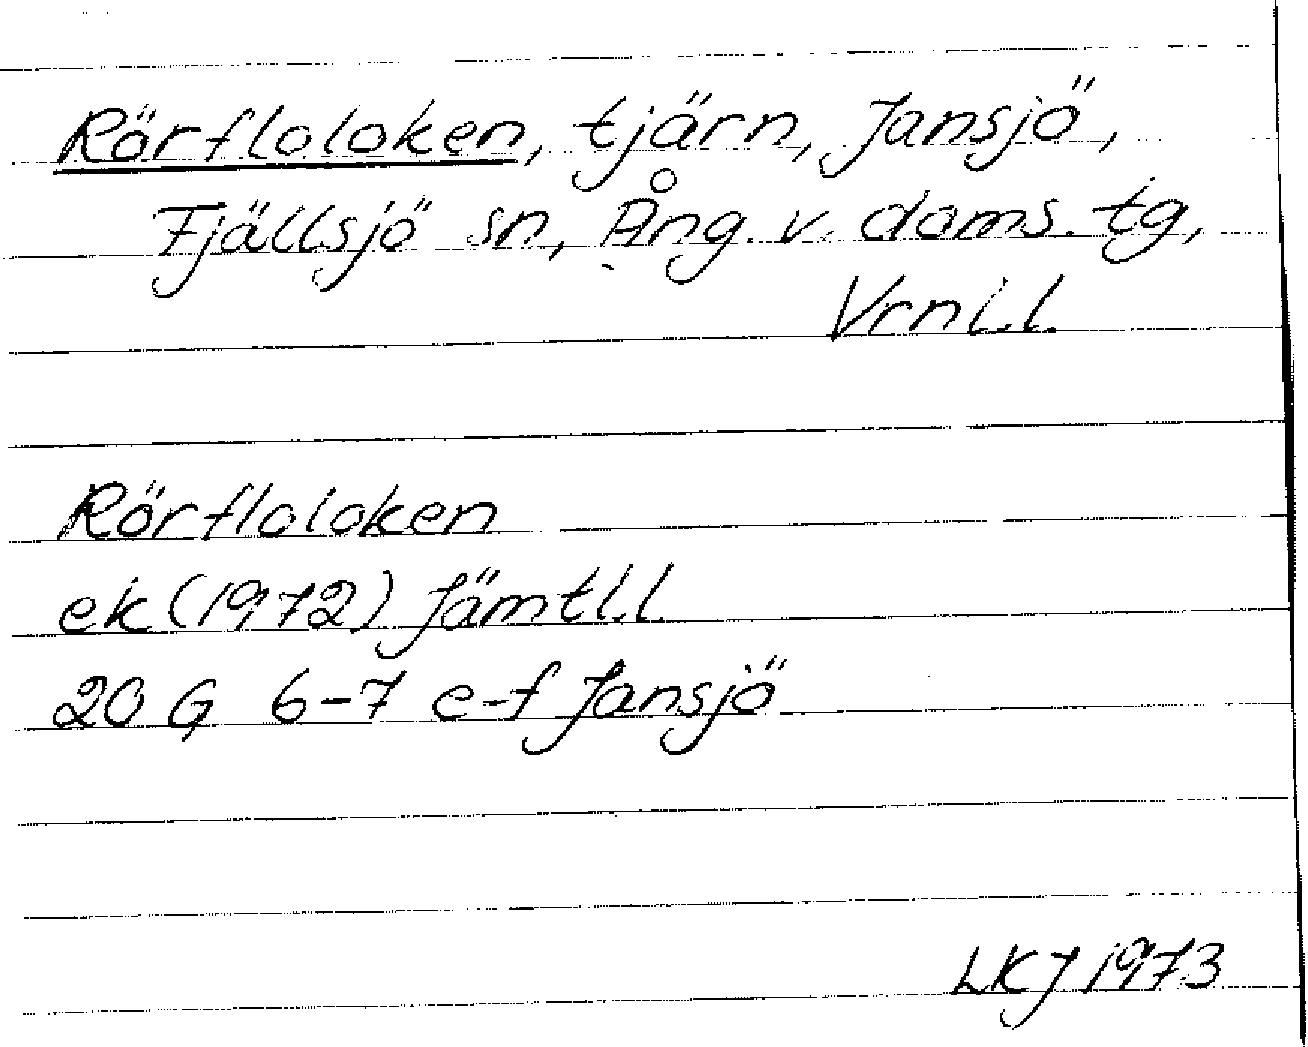 Rörfloloken, tjärn, Jansjö,
Fjällsjö sn, Ång. v. doms. tg,
Vrnl.l.
Rörfloloken
ek (1972) Jämtl.l
20 G 6-7 e-f Jansjö
LKJ 1973